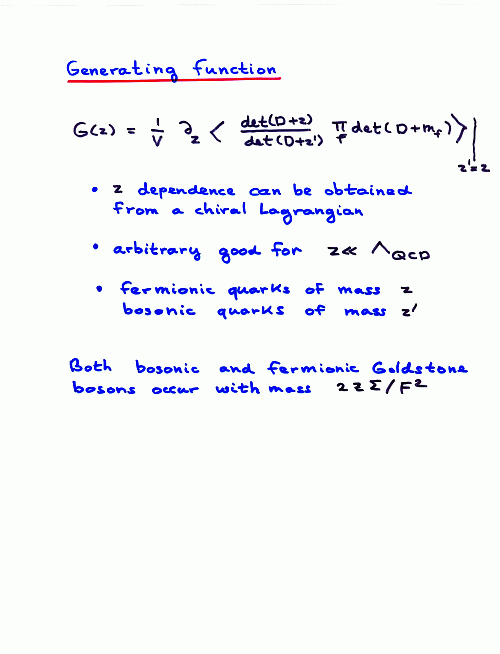 Generating Function
G(z) = 1/V ∂_z < det(D+z)/det(D+z') ∏_f det(D+m_f) > |_{z'=z}
• z dependence can be obtained
from a chiral Lagrangian
• arbitrary good for z << Λ_QCD
• fermionic quarks of mass z
bosonic quarks of mass z'
Both bosonic and fermionic Goldstone
bosons occur with mass 2zΣ/F²